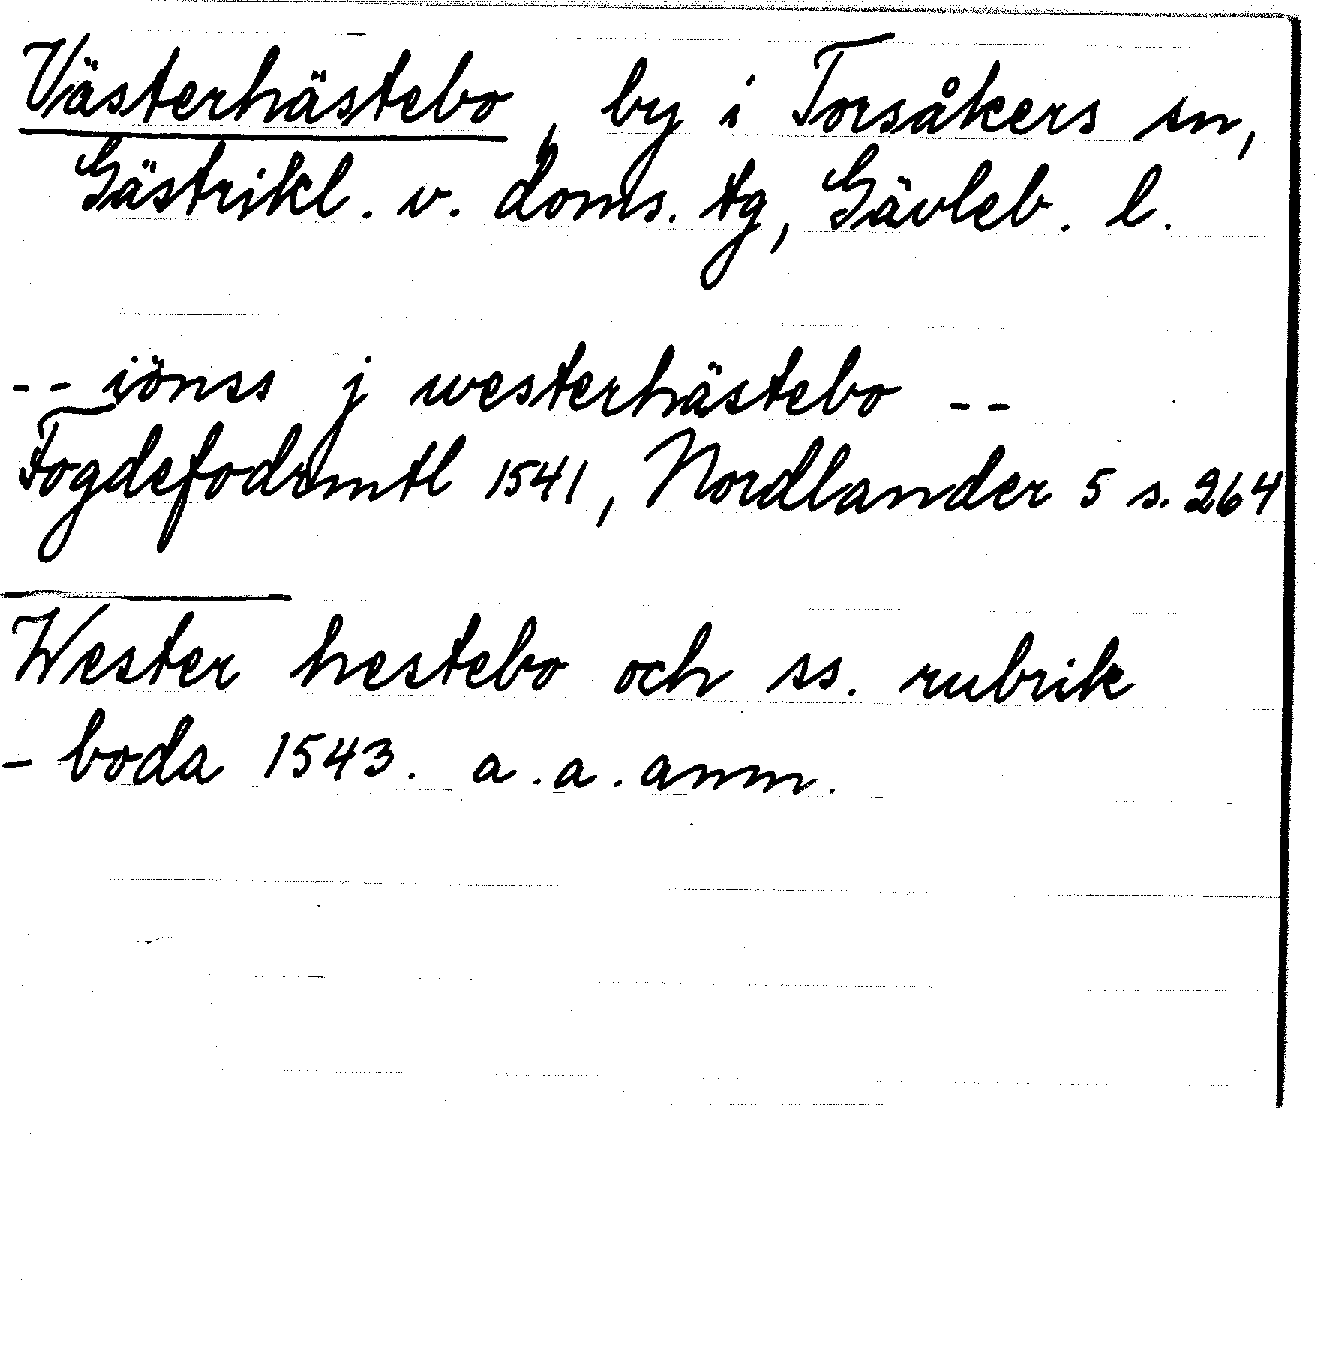 Västerhästebo, by i Torsåkers sn,
Gästrikl. v. doms. tg, Gävleb. l.
-- iönss j westerhästebo --
Fogdefodrmtl 1541, Nordlander 5 s. 264
Wester hestebo och ss. rubrik
- boda 1543. a.a. anm.